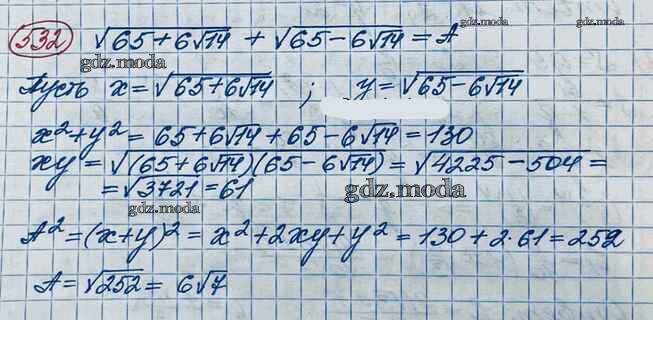 532 √65+6√14 + √65-6√14 = A
gdz.moda gdz.moda gdz.moda
Пусть x = √65+6√14 ; y = √65-6√14
x²+y² = 65+6√14+65-6√14 = 130
xy = √(65+6√14)(65-6√14) = √4225-504 =
= √3721 = 61 gdz.moda
gdz.moda
A² = (x+y)² = x²+2xy+y² = 130+2·61 = 252
A = √252 = 6√7